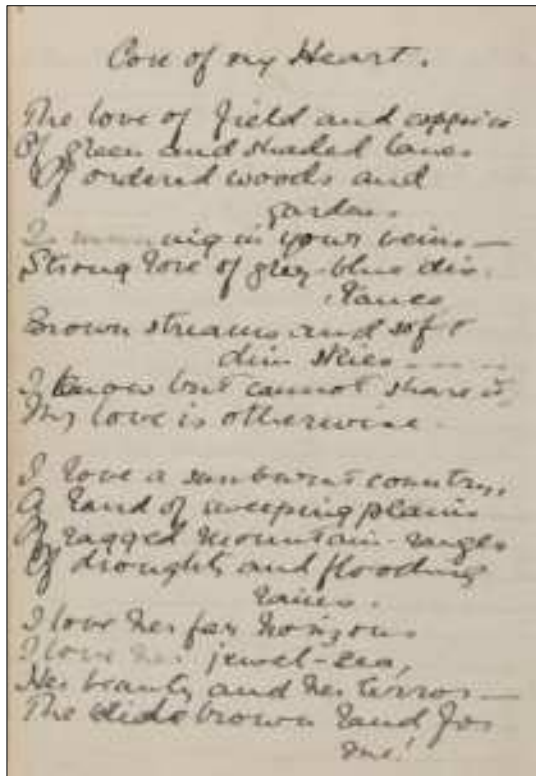 Core of my Heart.
The love of field and coppice
Of green and shaded lanes
Of ordered woods and
gardens
Is running in your veins —
Strong love of grey-blue dis-
tance
Brown streams and soft
dim skies - - - -
I know but cannot share it,
My love is otherwise.
I love a sunburnt country,
A land of sweeping plains
Of ragged mountain-ranges
Of droughts and flooding
rains.
I love her far horizons
I love her jewel-sea,
Her beauty and her terror —
The wide brown land for
me!